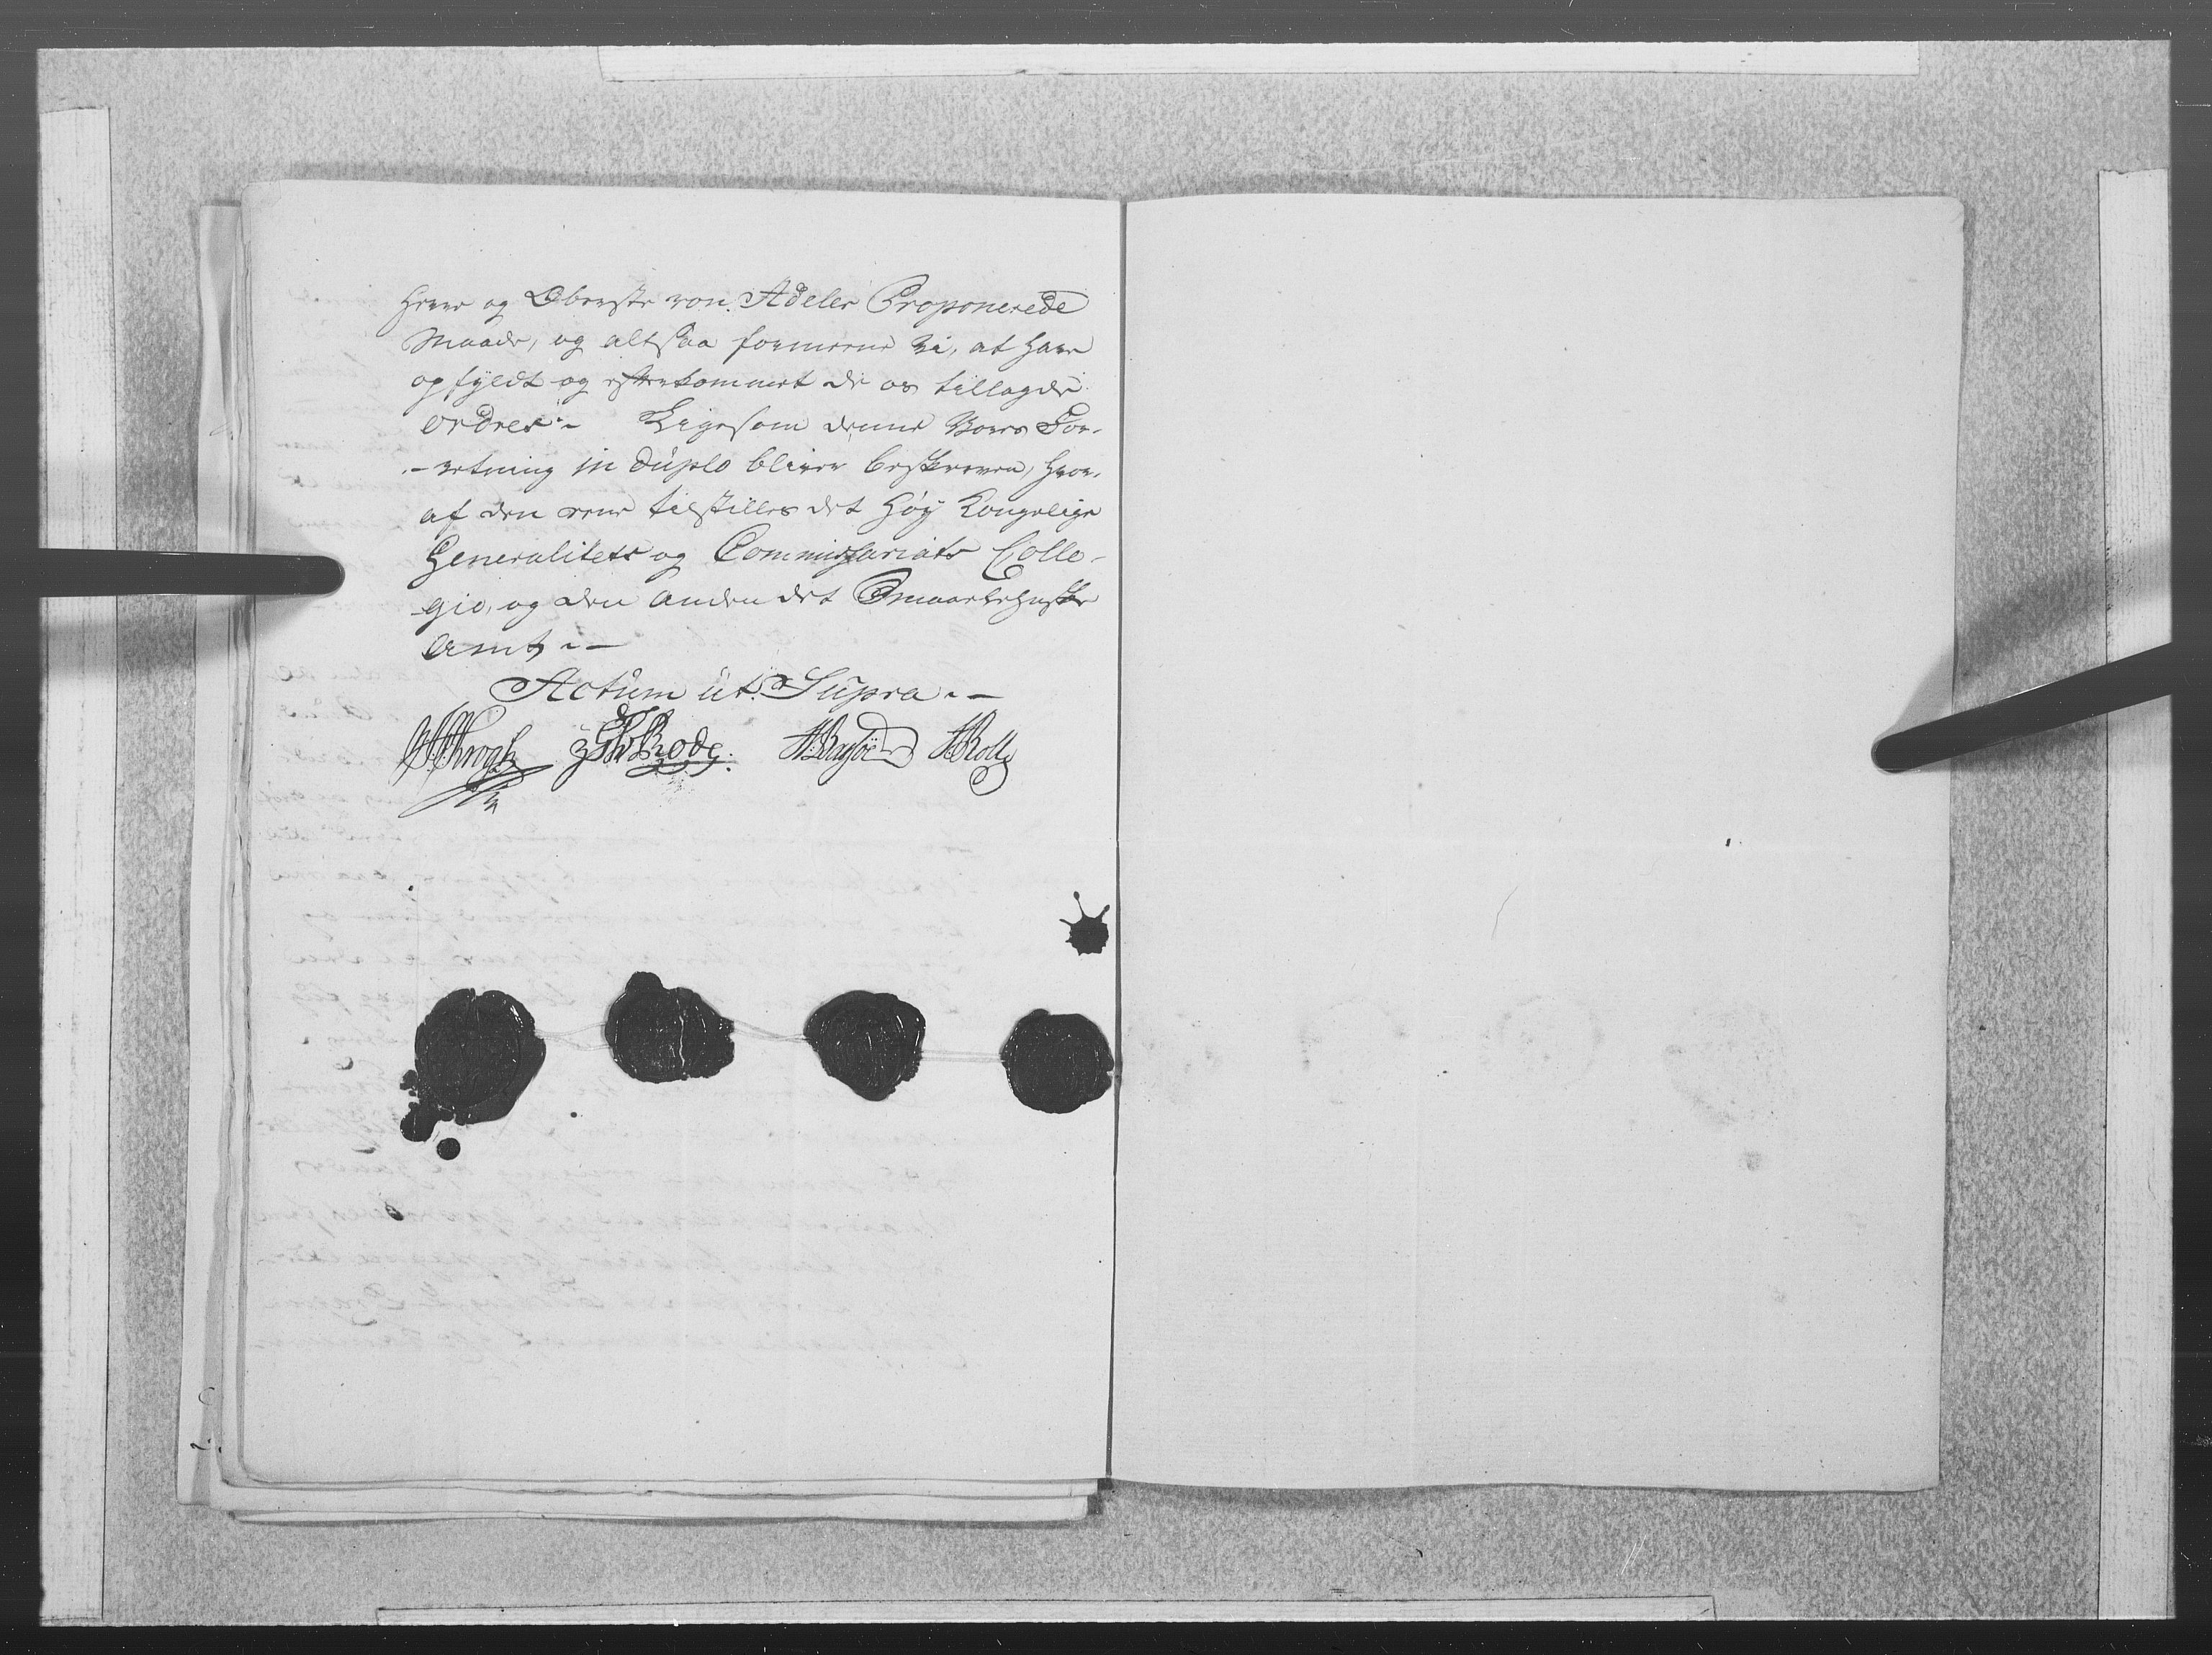 Herre og Oberste von Adeler Proponerede
Maade, og altsaa formeene Vi, at have
opfyldt og efterkommet de os tillagde
Ordres.- Ligesom denne Vores For-
-retning in Duplo bliver beskreven, hvor-
af den eene tilstilles det Høy Kongelige
Generalitets og Commissariats Colle-
gio, og den anden det Smaalehnske
Amt.-
Actum ut Supra.-
Krogh Rode: Rolls